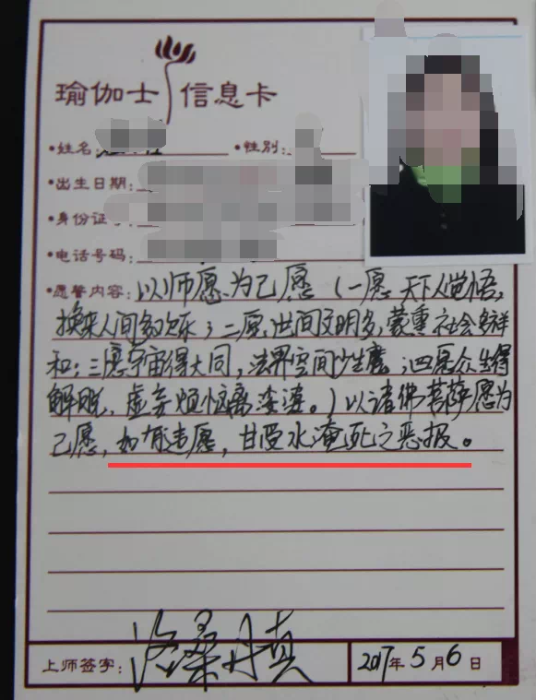 瑜伽士 信息卡
•姓名: •性别:
•出生日期:
•身份证号
•电话号码:
•愿誓内容: 以师愿为己愿（一愿天下人觉悟,
换来人间多欢乐；二愿世间文明多,蒙熏社会多祥
和；三愿宇宙得大同,法界空间少尘魔；四愿众生得
解脱,虚妄烦恼离娑婆。）以诸佛菩萨愿为
己愿,如有违愿,甘受水淹死之恶报。
上师签字: 洛桑丹真 2017年5月6日